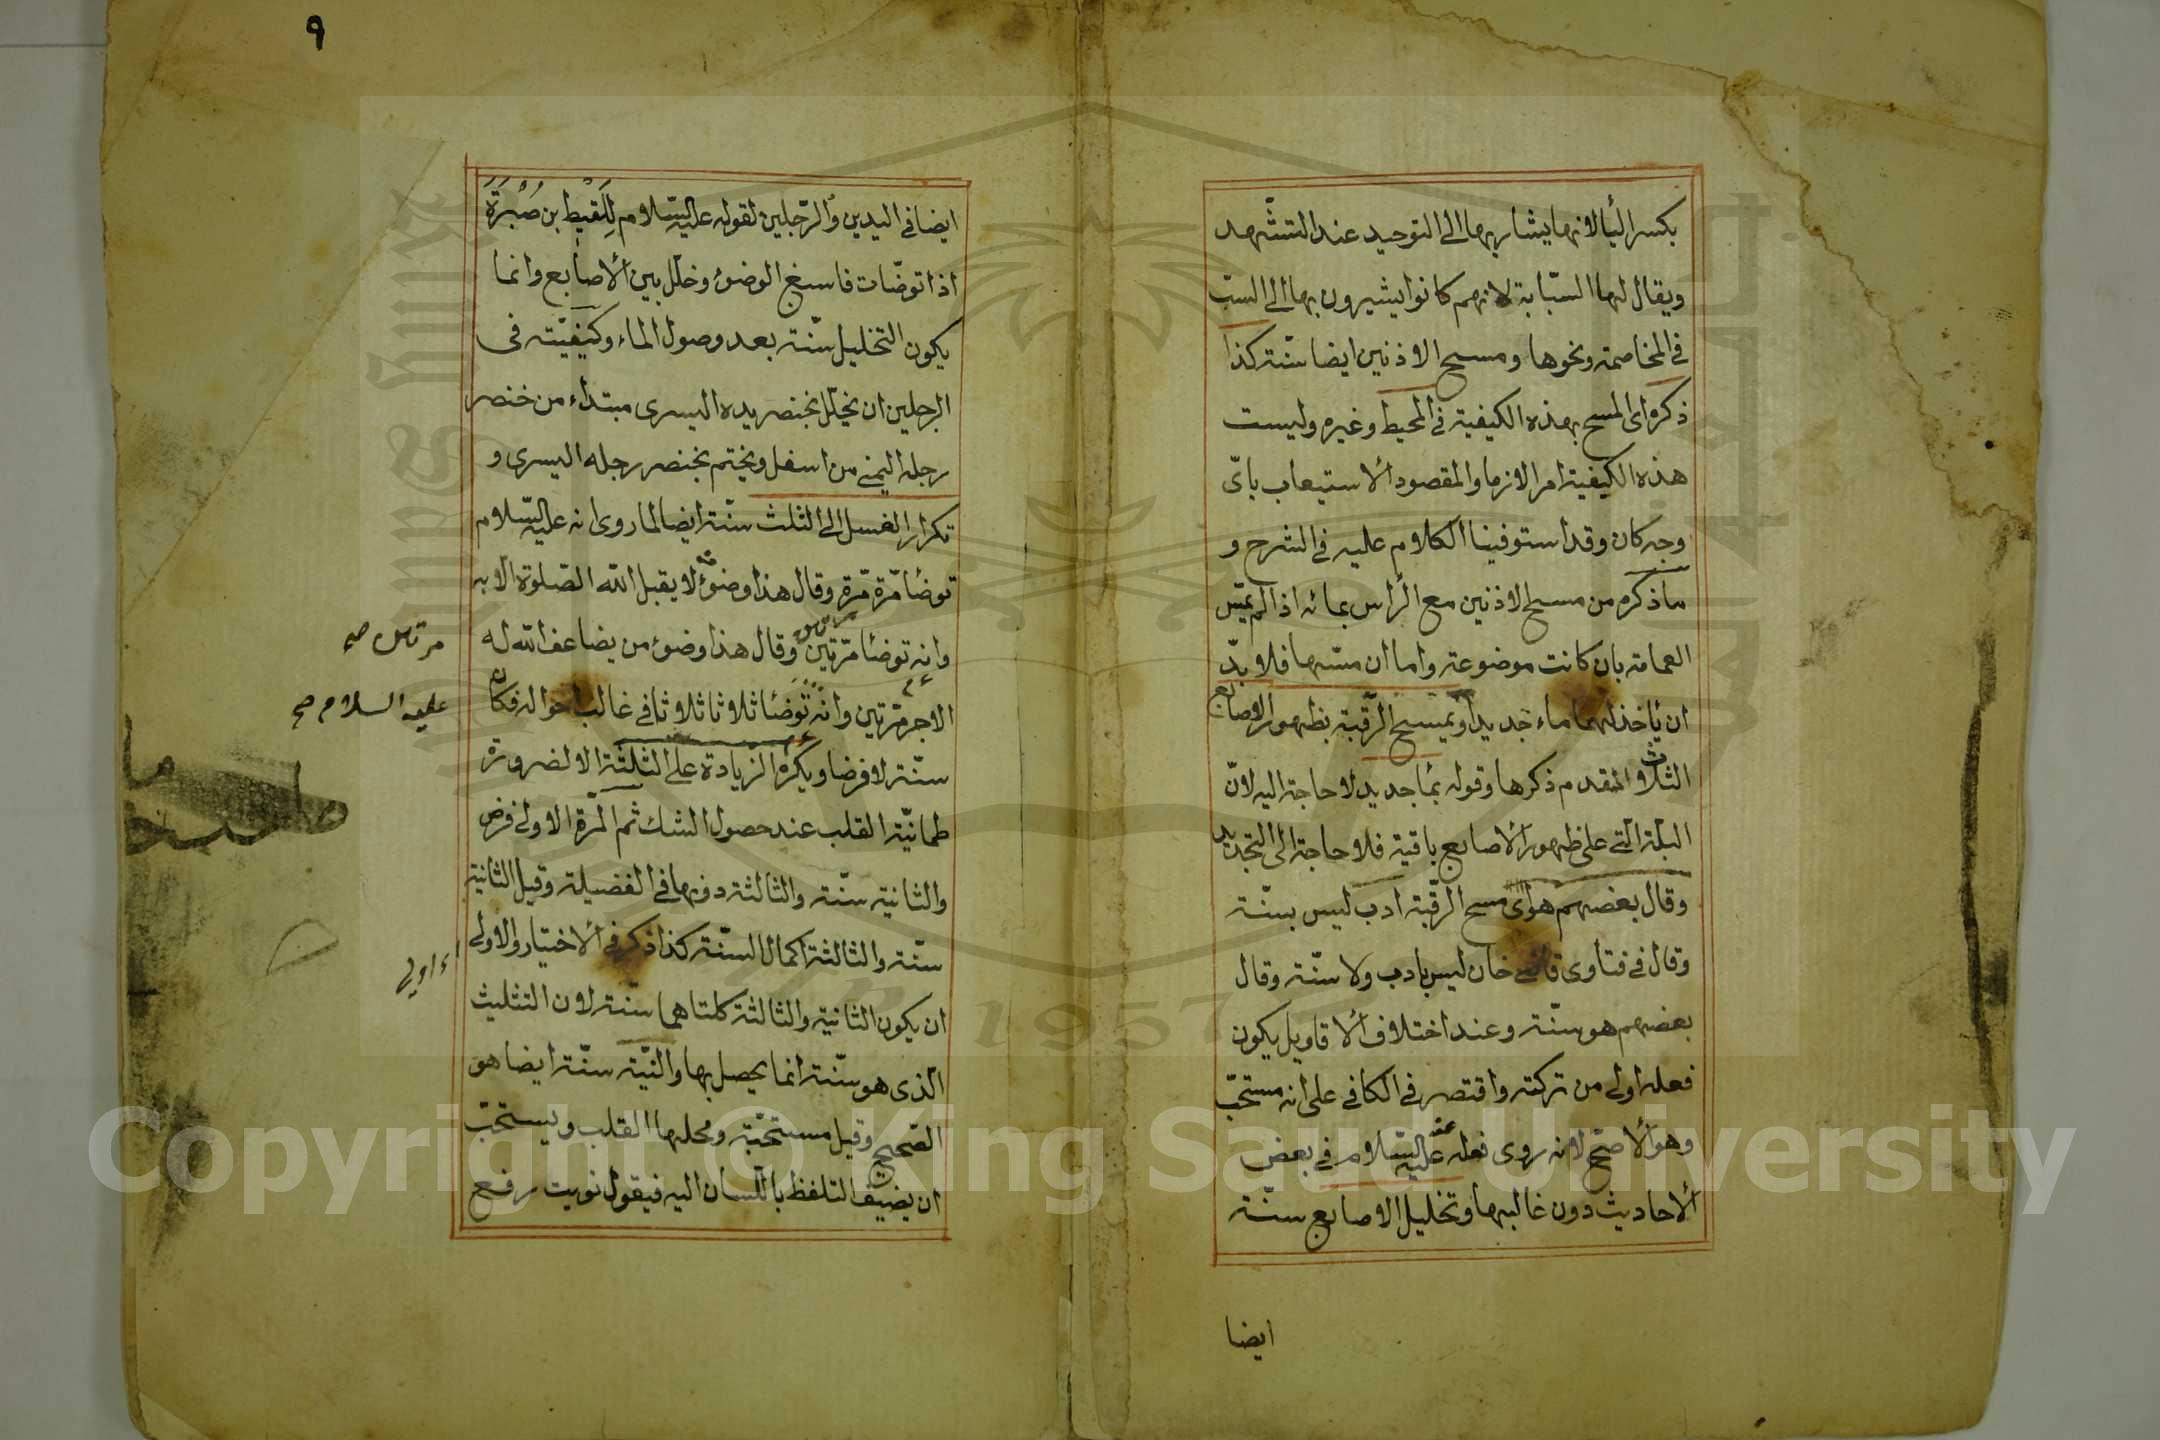 بكسر الباء لانها يشار بها الى التوحيد عند التشّهد
ويقال لها السبّابة لانهم كانوا يشيرون بها الى السبّ
فى المخاصمة ونحوها ومسح الاذنين ايضا سنّة كذا
ذكره اى المسح بهذه الكيفية فى المحيط وغيره وليست
هذه الكيفية امرا لازما والمقصود الاستيعاب باىّ
وجه كان وقد استوفينا الكلام عليه فى الشرح و
ما ذكره من مسح الاذنين مع الرأس بمائه اذا لم يمسّ
العمامة بان كانت موضوعة واما ان مسّها فلا بدّ
ان ياخذ لهما ماء جديدا ويمسح الرّقبة بظهور الاصابع
الثلاث المتقدم ذكرها وقوله بماء جديد لا حاجة اليه لانّ
البلّة التى على ظهور الاصابع باقية فلا حاجة الى التجديد
وقال بعضهم هو اى مسح الرّقبة ادب ليس بسنّة
وقال فى فتاوى قاضى خان ليس بادب ولا سنّة وقال
بعضهم هو سنّة وعند اختلاف الاقاويل يكون
فعله اولى من تركته واقتصر فى الكافى على انه مستحبّ
وهو الاصّح لانه روى فعله عنه عليه السّلام فى بعض
الاحاديث دون غالبها وتخليل الاصابع سنّة
ايضا
٩
ايضا فى اليدين والرّجلين لقوله عليه السّلام لِلَقيطِ بن صُبْرَةَ
اذا توضّات فاسبغ الوضوء وخلّل بين الاصابع وانما
يكون التخليل سنّة بعد وصول الماء وكيفيّته فى
الرجلين ان يخلّل بخنصر يده اليسرى مبتداء من خنصر
رجله اليمنى من اسفل ويختم بخنصر رجله اليسرى و
تكرار الغسل الى الثلث سنّة ايضا لما روى انه عليه السّلام
توضأ مرّة مرّة وقال هذا وضوء لا يقبل الله الصّلوة الا به
وانه توضأ مرّتين وقال هذا وضوء من يضاعف الله له
مرتين صح
الاجر مرّتين وانه توضأ ثلاثا ثلاثا فى غالب احواله فكان
عليه السلام صح
سنّة لا فرضا ويكره الزيادة على الثلثة الا لضرورة
طمانيّة القلب عند حصول الشك ثم المرّة الاولى فرض
والثانية سنّة والثالثة دونها فى الفضيلة وقيل الثانية
سنّة والثالثة اكمال السنّة كذا ذكر فى الاختيار والاولى
اولى
ان يكون الثانية والثالثة كلتاهما سنّة لان التثليث
الّذى هو سنّة انما يحصل بها والنيّة سنّة ايضا هو
الصّحيح وقيل مستحبّة ومحلها القلب ويستحبّ
ان يضيف التلفظ باللّسان اليه فيقول نويت رفع
Copyright © King Saud University
1957